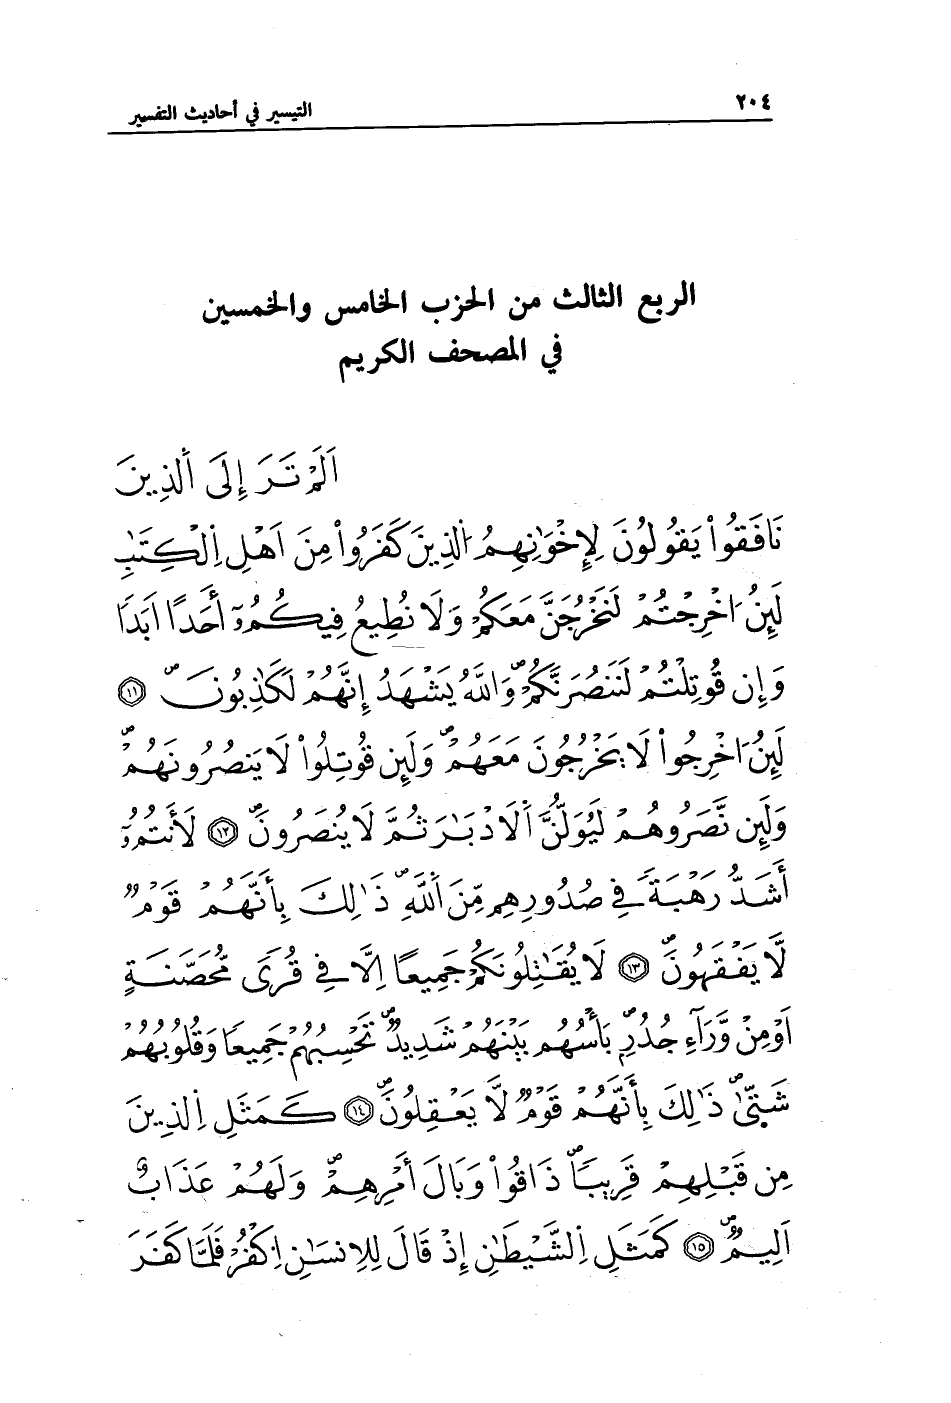 ٢٠٤
التيسير في أحاديث التفسير
الربع الثالث من الحزب الخامس والخمسين
في المصحف الكريم
اَلَمْ تَرَ إِلَى اَ۬لذِينَ
نَافَقُواْ يَقُولُونَ لِإِخْوَٰنِهِمُ اُ۬لذِينَ كَفَرُواْ مِنَ اَهْلِ اِ۬لْكِتَٰبِ
لَئِنُ اخْرِجْتُمْ لَنَخْرُجَنَّ مَعَكُمْ وَلَا نُطِيعُ فِيكُمُۥٓ أَحَدًا اَبَدًا
وَإِن قُوتِلْتُمْ لَنَنصُرَنَّكُمْ وَاللَّهُ يَشْهَدُ إِنَّهُمْ لَكَٰذِبُونَ ١١
لَئِنُ اخْرِجُواْ لَا يَخْرُجُونَ مَعَهُمْ وَلَئِن قُوتِلُواْ لَا يَنصُرُونَهُمْ
وَلَئِن نَّصَرُوهُمْ لَيُوَلُّنَّ اَ۬لَادْبَٰرَ ثُمَّ لَا يُنصَرُونَ ١٢ لَأَنتُمُۥٓ
أَشَدُّ رَهْبَةً فِے صُدُورِهِم مِّنَ اَ۬للَّهِ ذَٰلِكَ بِأَنَّهُمْ قَوْمٌ
لَّا يَفْقَهُونَ ١٣ لَا يُقَٰتِلُونَكُمْ جَمِيعًا اِلَّا فِے قُرًى مُّحَصَّنَةٍ
اَوْ مِنْ وَّرَآءِ جُدُرٍ بَأْسُهُم بَيْنَهُمْ شَدِيدٌ تَحْسِبُهُمْ جَمِيعًا وَقُلُوبُهُمْ
شَتّ۪ىٰ ذَٰلِكَ بِأَنَّهُمْ قَوْمٌ لَّا يَعْقِلُونَ ١٤ كَمَثَلِ اِ۬لذِينَ
مِن قَبْلِهِمْ قَرِيبًا ذَاقُواْ وَبَالَ أَمْرِهِمْ وَلَهُمْ عَذَابٌ
اَلِيمٌ ١٥ كَمَثَلِ اِ۬لشَّيْطَٰنِ إِذْ قَالَ لِلِانسَٰنِ اِ۟كْفُرْ فَلَمَّا كَفَرَ